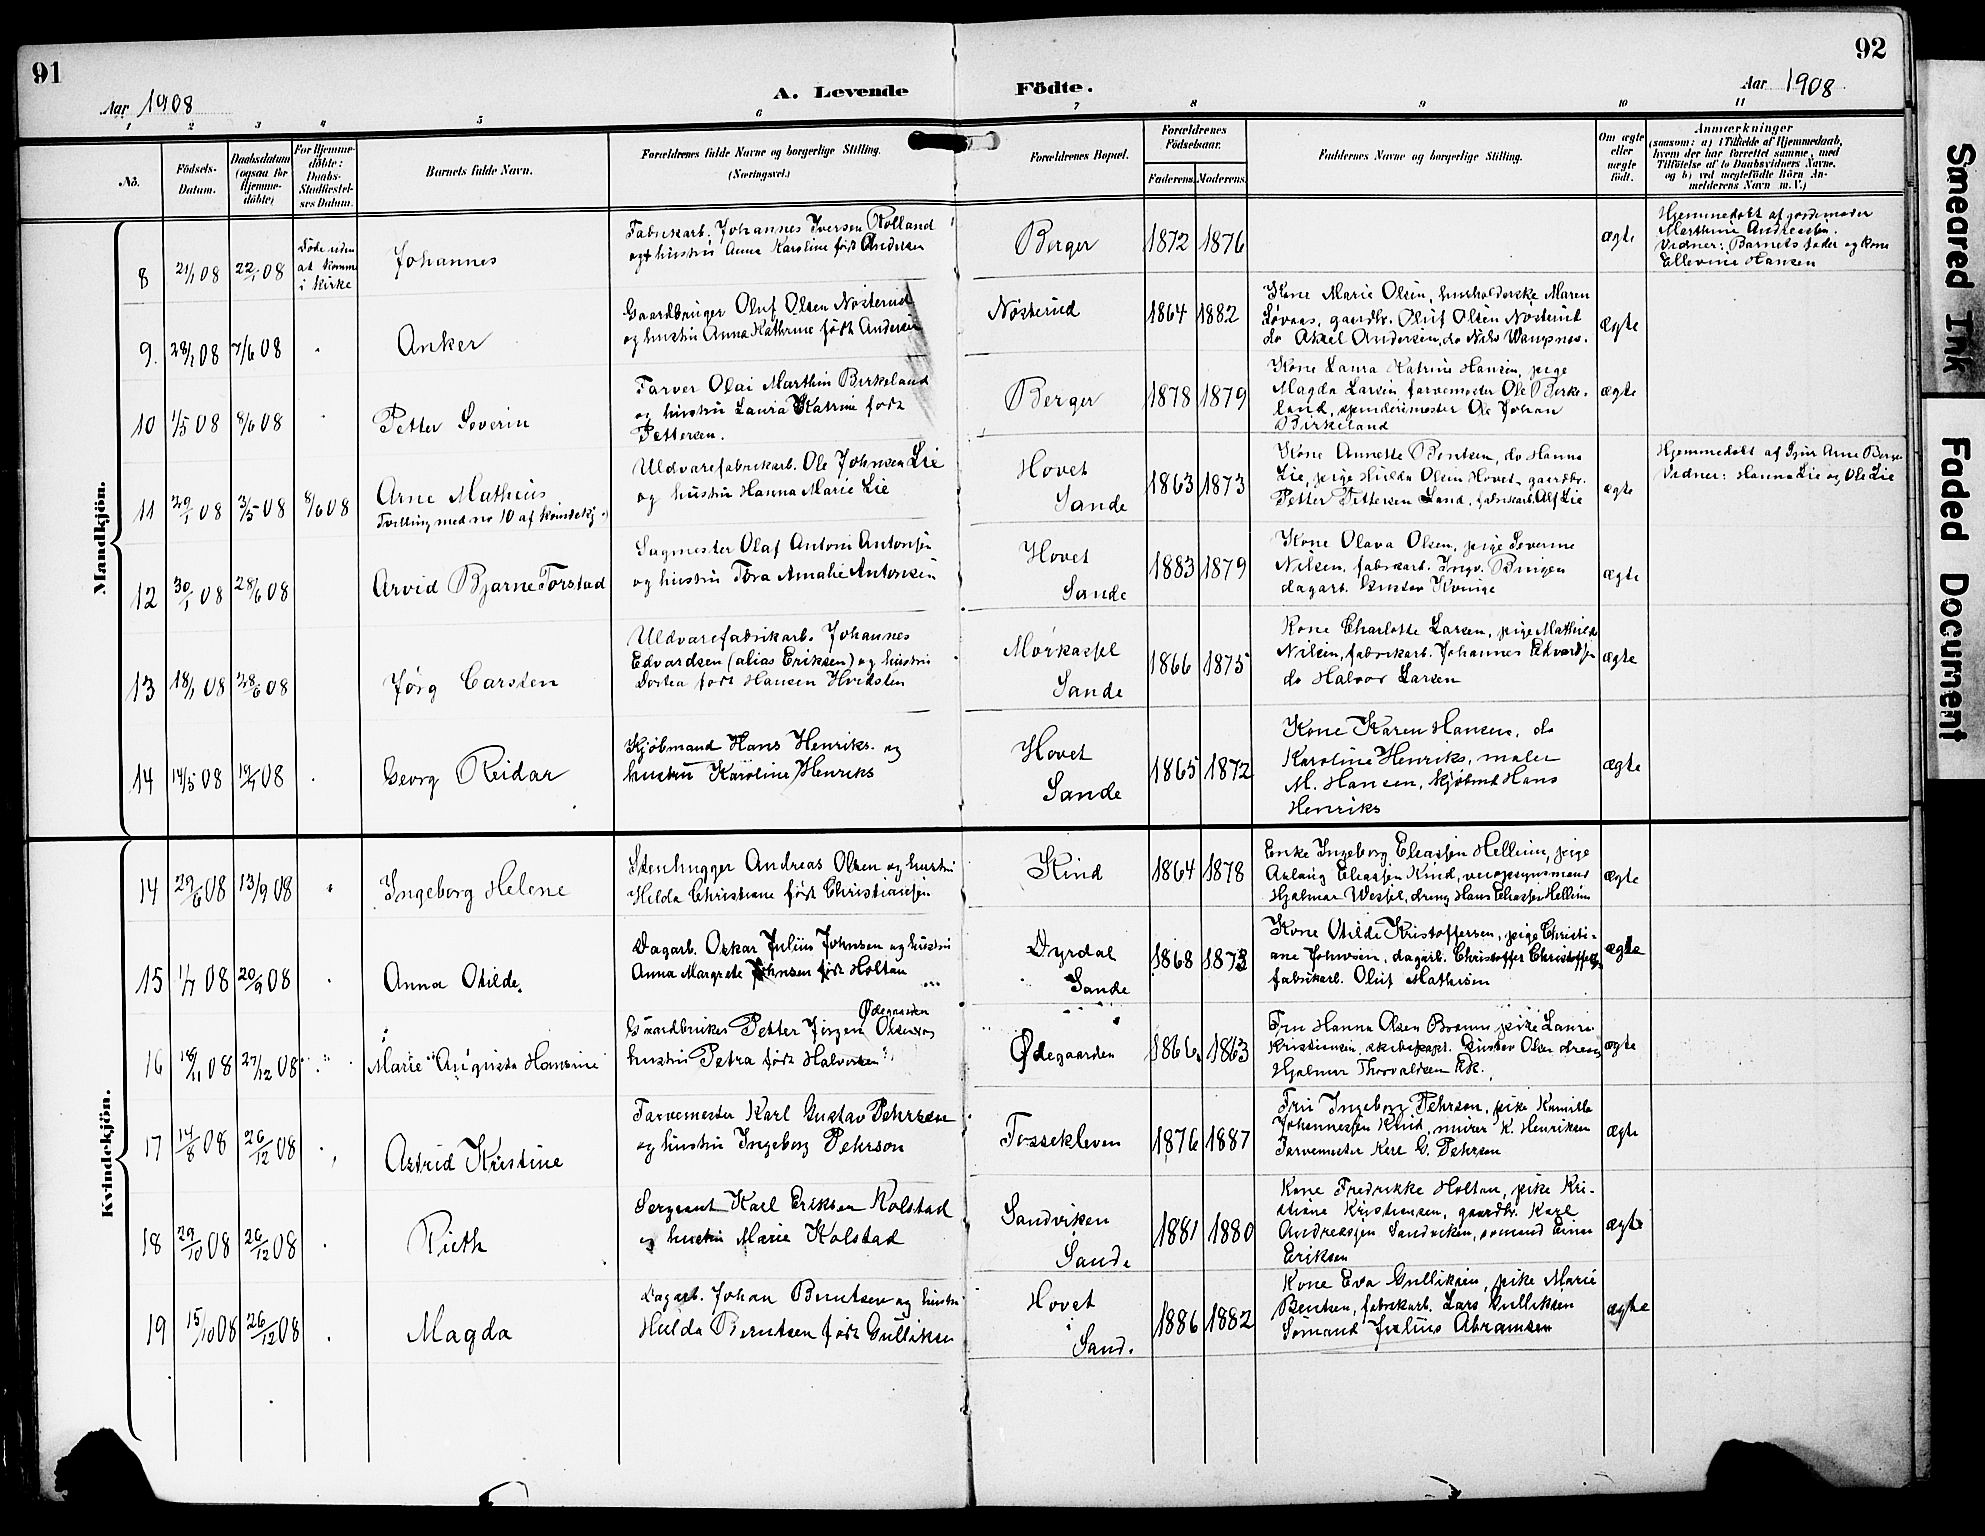 91
92
Aar 1908
A. Levende Födte.
Aar 1908
1 2 3 4 5 6 7 8 9 10 11
No.
Födsels-Datum.
Daabsdatum (ogsaa for Hjemmedöbte)
For Hjemmedöbte: Daabs-Stadfæstelses Datum.
Barnets fulde Navn.
Forældrenes fulde Navne og borgerlige Stilling. (Næringsvei.)
Forældrenes Bopæl.
Forældrenes Födselsaar.
Faderens. Moderens.
Faddernes Navne og borgerlige Stilling.
Om ægte eller uægte födt.
Anmærkninger
(saasom: a) i Tilfælde af Hjemmedaab, hvem der har forrettet samme, med Tilföielse af to Daabsvidners Navne, og b) ved uægtefödte Börn Anmelderens Navn m. V.)
Mandkjön.
8 21/1 08 22/1 08
Døde uden
at komme
i kirke
Johannes
Fabrikarb. Johannes Iversen Rolland
og hustru Anna Karoline født Andersen
Berger 1872 1876 ægte
Hjemmedøbt af jordemoder
Marthine Andreasen.
Vidner: Barnets fader og kone
Ellevine Hansen
9. 28/1 08 7/6 08 Anker
Gaardbruger Oluf Olsen Nøsterud
og hustru Anna Kathrine født Andersen
Nøsterud 1864 1882
Kone Marie Olsen, husholderske Maren
Løvaas, gaardbr. Oluf Olsen Nøsterud
do Aksel Andersen, do Nils
ægte
10 1/5 08 8/6 08 Petter Severin
Farver Olai Marthin Birkeland
og hustru Laura Katrine født
Pettersen.
Berger 1878 1879
Kone Laura Katrine Hansen, pige
Magda Larsen farvemester Ole Birke-
land, spinderimester Ole Johan
Birkeland
ægte
11 29/1 08 3/5 08 8/6 08 Arne Mathius
Tvilling med no 10 af kvindekj.
Uldvarefabrikarb. Ole Johnsen Lie
og hustru Hanna Marie Lie
Hovet
Sande
1863 1873
Kone Annette Bentsen, do Hanna
Lie, pige Hulda Olsen Hovet, gaardbr.
Petter Pettersen Sand, fabrikarb. Alf Lie
ægte
Hjemmedøbt af Arne
Vidner: Hanna Lie og Ole Lie
12 30/1 08 28/6 08 Arvid Bjarne Torstad
Sagmester Olaf Antoni Antonsen
og hustru Tora Amalie Antonsen
Hovet
Sande
1883 1879
Kone Olava Olsen, pige Severine
Nilsen, fabrikarb. Ingv. Bingen
dagarb. Gustav
ægte
13 18/1 08 28/6 08 Jørg Carsten
Uldvarefabrikarb. Johannes
Edvardsen (alias Eriksen) og hustru
Dortea født Hansen Hvidsten
Mørkassel
Sande
1866 1875
Kone Charlotte Larsen, pige Mathilde
Nilsen, fabrikarb. Johannes Edvardsen
do Halvor Larsen
ægte
14 14/5 08 19/7 08 Georg Reidar
Kjøbmand Hans Henriks. og
hustru Karoline Henriks
Hovet
Sande
1865 1872
Kone Karen Hansen, do
Karoline Henriks, maler
M. Hansen, kjøbmd Hans
Henriks
ægte
Kvindekjön.
14 29/6 08 13/9 08 Ingeborg Helene
Stenhugger Andreas Olsen og hustru
Hilda Christiane født Christiansen
Kind 1864 1878
Enke Ingeborg Eliassen Hellum, pige
Aslaug Eliassen Kind, veiopsynsmand
Hjalmar Wessel, dreng Hans Eliassen Hellum
ægte
15 1/7 08 20/9 08 Anna Otilde.
Dagarb. Oskar Julius Johnsen og hustru
Anna Margrete Johnsen født Holtan
Dyrdal
Sande
1868 1873
Kone Otilde Kristoffersen, pige Christi-
ane Johnsen, dagarb. Christoffer Christoffers.
fabrikarb. Oluf Mathisen
ægte
16 18/11 08 27/12 08 Marie Augusta Hansine
Ødegaarden
Gaardbruker Petter Jørgen Olsen og
hustru Petra født Halvorsen
Ødegaarden 1866 1863
Fru Hanna Olsen Broum pike Laura
Kristiansen, skibskapt. Gustav Olsen dreng
Hjalmar Thorvaldsen
ægte
17 14/8 08 26/12 08 Astrid Kristine
Farvemester Karl Gustav Pehrson
og hustru Ingeborg Pehrson
Fossekleven 1876 1887
Fru Ingeborg Pehrson, pike Kamilla
Johannessen Kind, murer K. Henriksen
Farvemester Karl G. Pehrson
ægte
18 29/10 08 26/12 08 Rieth
Sergeant Karl Eriksen Kolstad
og hustru Marie Kolstad
Sandviken
Sande
1881 1880
Kone Fredrikke Holtan, pike Kri-
stiane Kristensen, gaardbr. Karl
Andreassen Sandviken, sømand Einar
Eriksen
ægte
19 15/10 08 26/12 08 Magda
Dagarb. Johan Berntsen og hustru
Hulda Berntsen født Gulliksen
Hovet
Sand.
1886 1882
Kone Eva Gulliksen, pike Marie
Bentsen, fabrikarb. Lars Gulliksen
Sømand Julius Abramsen
ægte
Smeared Ink
Faded Document